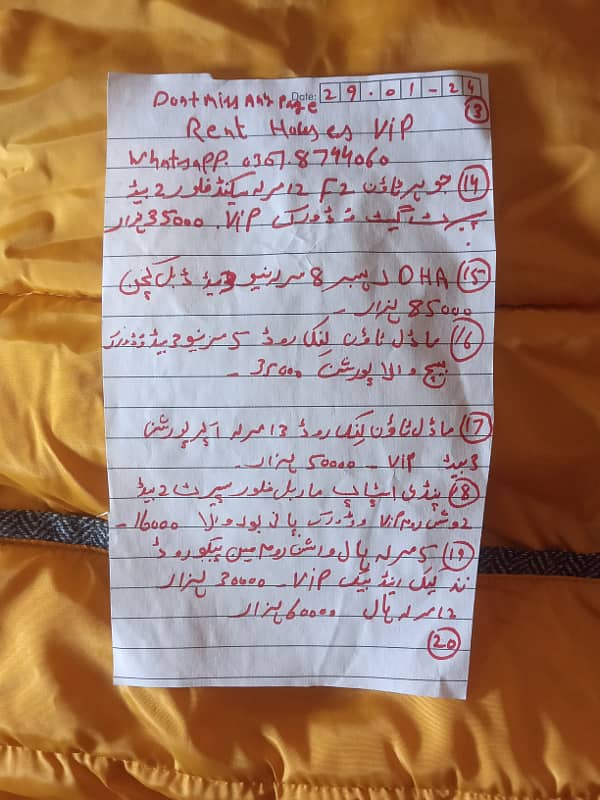 Date: 29-01-24
Dont Miss Any Page
③
Rent Houses ViP
WhatsAPP. 0307.8794060
⑭ جوہر ٹاؤن F2 12 مرلہ سیکنڈ فلور 2 بیڈ
گیٹ وڈورک ViP. 35000 ہزار
⑮ DHA رہبر 8 مرلہ نیو 3 بیڈ ڈبل کچن
85000 ہزار -
⑯ ماڈل ٹاؤن لنک روڈ 5 مرلہ نیو 2 بیڈ وڈورک
بیچ والا پورشن 35000 -
⑰ ماڈل ٹاؤن لنک روڈ 13 مرلہ اپر پورشن
3 بیڈ ViP - 50000 ہزار -
⑱ پنڈی اسٹاپ ماربل فلور سپرٹ 2 بیڈ
2 وش روم ViP وڈورک پانی بور والا 16000 -
⑲ 5 مرلہ ہال واشن روم مین پیکو روڈ
نذ لیک اینڈ ViP - 30000 ہزار
12 مرلہ ہال 60000 ہزار
⑳